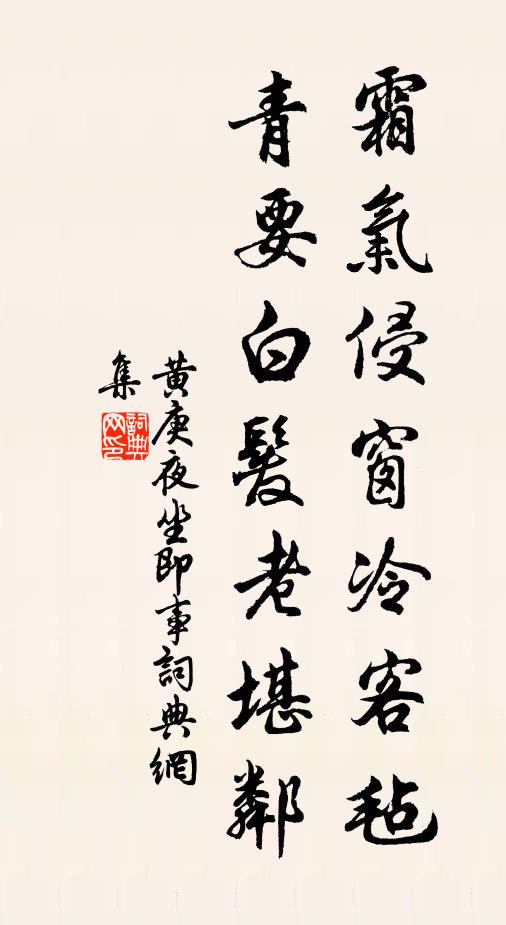 霜氣侵窗冷客氈
青要白髮老堪鄰
黃庚夜坐即事詞典網
集
詞典網印